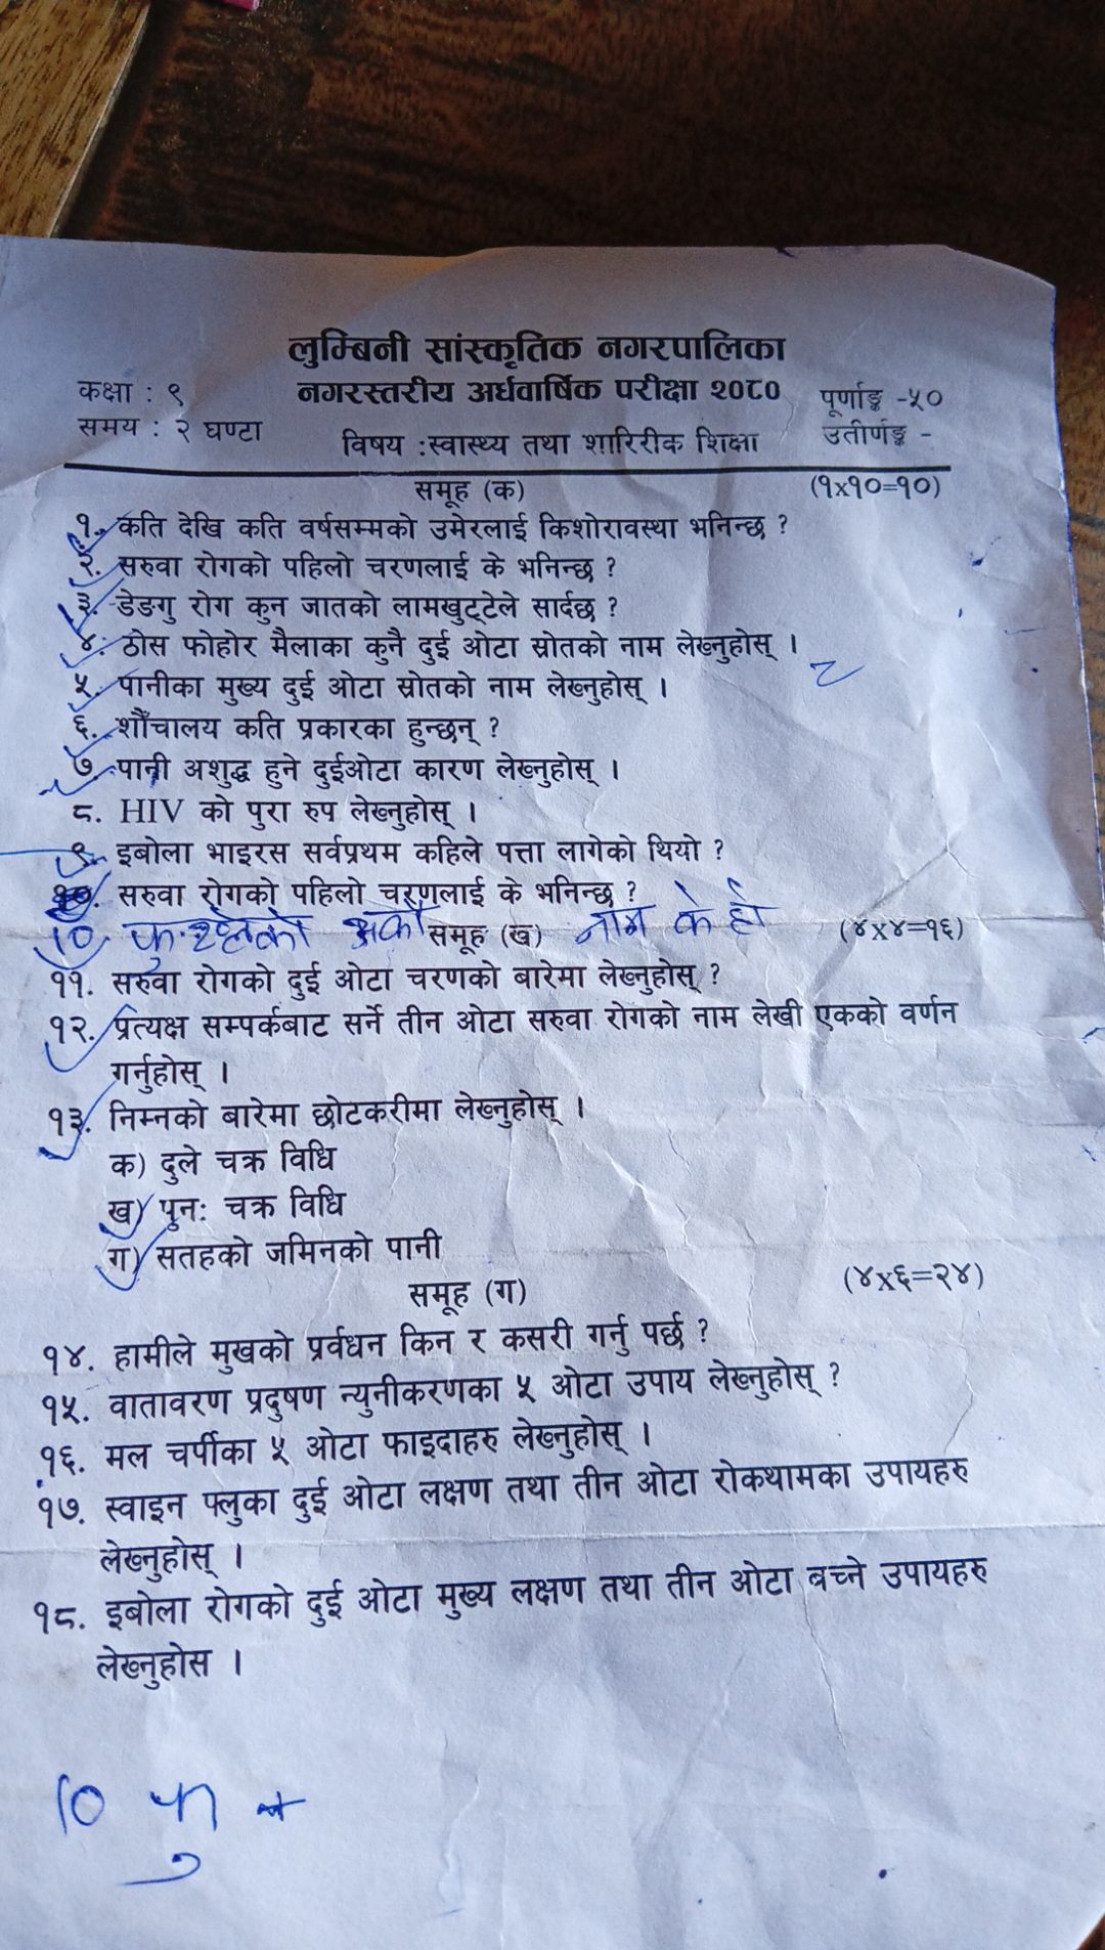 लुम्बिनी सांस्कृतिक नगरपालिका
कक्षा : ९ नगरस्तरीय अर्धवार्षिक परीक्षा २०८० पूर्णाङ्क -५०
समय : २ घण्टा विषय :स्वास्थ्य तथा शारिरीक शिक्षा उतीर्णङ्क -
समूह (क) (१x१०=१०)
१. कति देखि कति वर्षसम्मको उमेरलाई किशोरावस्था भनिन्छ ?
२. सरुवा रोगको पहिलो चरणलाई के भनिन्छ ?
३. डेङगु रोग कुन जातको लामखुट्टेले सार्दछ ?
४. ठोस फोहोर मैलाका कुनै दुई ओटा स्रोतको नाम लेख्नुहोस् ।
५. पानीका मुख्य दुई ओटा स्रोतको नाम लेख्नुहोस् ।
६. शौँचालय कति प्रकारका हुन्छन् ?
७. पानी अशुद्ध हुने दुईओटा कारण लेख्नुहोस् ।
८. HIV को पुरा रुप लेख्नुहोस् ।
९. इबोला भाइरस सर्वप्रथम कहिले पत्ता लागेको थियो ?
१०. सरुवा रोगको पहिलो चरणलाई के भनिन्छ ?
10. अर्को नाम के हो
समूह (ख) (४x४=१६)
११. सरुवा रोगको दुई ओटा चरणको बारेमा लेख्नुहोस् ?
१२. प्रत्यक्ष सम्पर्कबाट सर्ने तीन ओटा सरुवा रोगको नाम लेखी एकको वर्णन
गर्नुहोस् ।
१३. निम्नको बारेमा छोटकरीमा लेख्नुहोस् ।
क) दुले चक्र विधि
ख) पुनः चक्र विधि
ग) सतहको जमिनको पानी
समूह (ग) (४x६=२४)
१४. हामीले मुखको प्रर्वधन किन र कसरी गर्नु पर्छ ?
१५. वातावरण प्रदुषण न्युनीकरणका ५ ओटा उपाय लेख्नुहोस् ?
१६. मल चर्पीका ५ ओटा फाइदाहरु लेख्नुहोस् ।
१७. स्वाइन फ्लुका दुई ओटा लक्षण तथा तीन ओटा रोकथामका उपायहरु
लेख्नुहोस् ।
१८. इबोला रोगको दुई ओटा मुख्य लक्षण तथा तीन ओटा बच्ने उपायहरु
लेख्नुहोस ।
10 फु